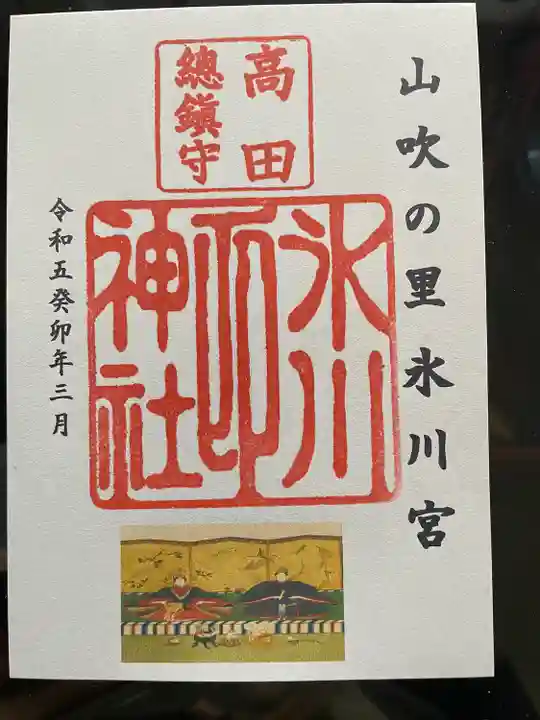 山吹の里氷川宮
高田
總鎮守
氷川
神社
印
令和五癸卯年三月